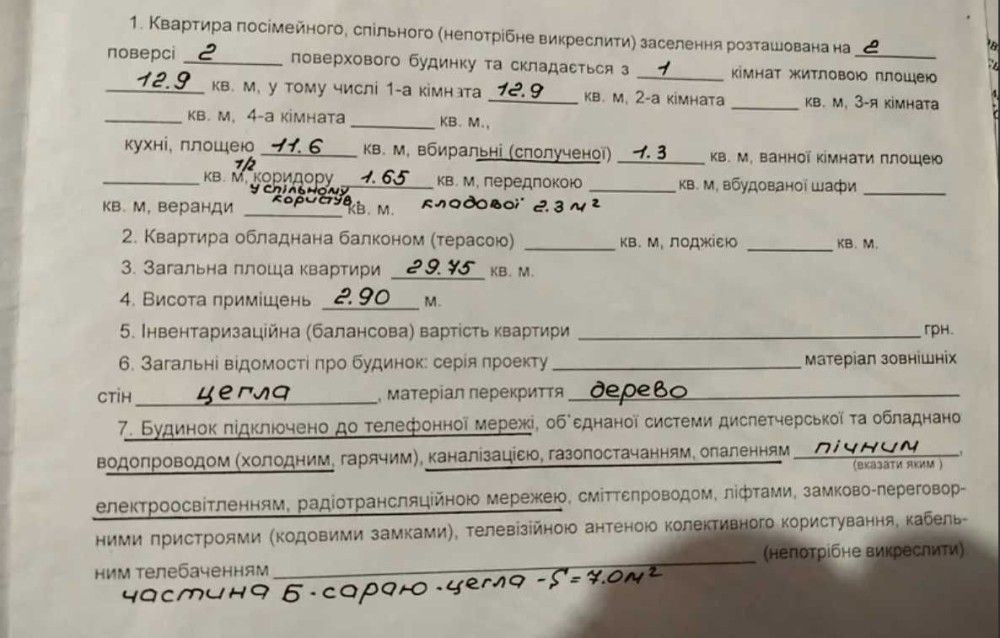 1. Квартира посімейного, спільного (непотрібне викреслити) заселення розташована на 2
поверсі 2 поверхового будинку та складається з 1 кімнат житловою площею
12.9 кв. м, у тому числі 1-а кімната 12.9 кв. м, 2-а кімната ______ кв. м, 3-я кімната
______ кв. м, 4-а кімната ______ кв. м.,
кухні, площею 11.6 кв. м, вбиральні (сполученої) 1.3 кв. м, ванної кімнати площею
______ кв. м, 1/2 коридору 1.65 кв. м, передпокою ______ кв. м, вбудованої шафи ______
у спільному
користув.
кв. м, веранди ______ кв. м. кладової 2.3 м²
2. Квартира обладнана балконом (терасою) ______ кв. м, лоджією ______ кв. м.
3. Загальна площа квартири 29.75 кв. м.
4. Висота приміщень 2.90 м.
5. Інвентаризаційна (балансова) вартість квартири ______ грн.
6. Загальні відомості про будинок: серія проекту ______ матеріал зовнішніх
стін цегла, матеріал перекриття дерево
7. Будинок підключено до телефонної мережі, об'єднаної системи диспетчерської та обладнано
водопроводом (холодним, гарячим), каналізацією, газопостачанням, опаленням пічним,
(вказати яким)
електроосвітленням, радіотрансляційною мережею, сміттєпроводом, ліфтами, замково-переговор-
ними пристроями (кодовими замками), телевізійною антеною колективного користування, кабель-
ним телебаченням ______ (непотрібне викреслити)
частина Б - сараю - цегла - S = 7.0 м²